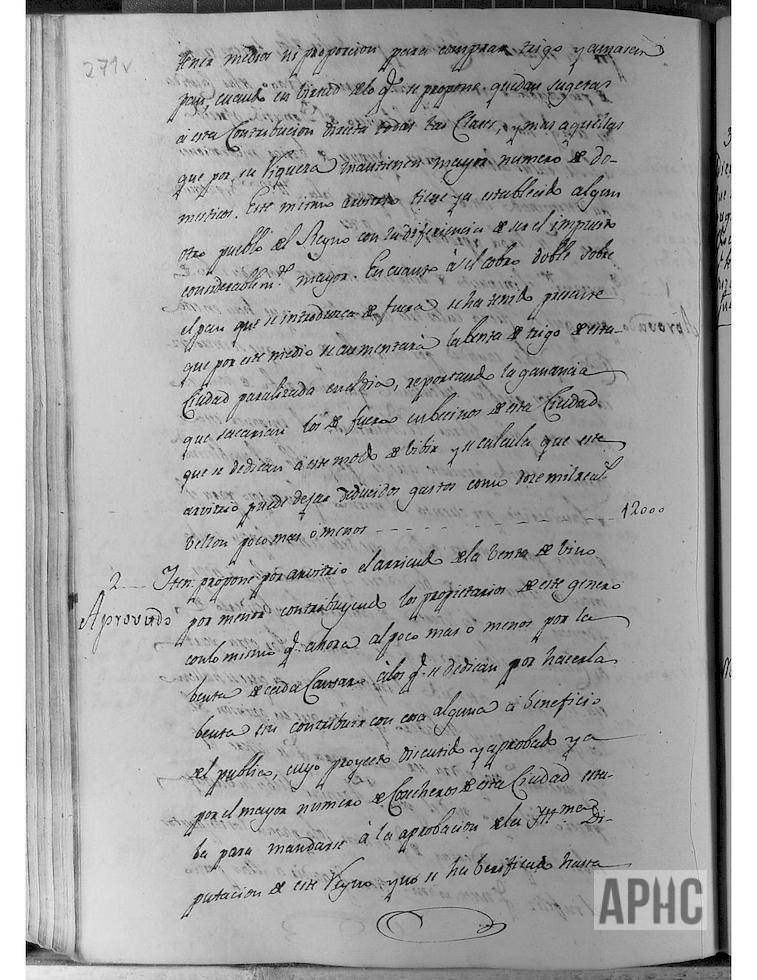 271v
tener medios ni proporcion para comprar trigo y amasar
pan, cuando en virtud de lo q.e se propone, quedan sugetas
à esta Contribucion directa todas las Clases, y mas aquellas
que por su riquera mantienen mayor numero de do-
mesticos. Este mismo arvitrio tiene ya establecido algun
otro pueblo del Reyno con la diferiencia de ser el impuesto
considerablem.te mayor. En cuanto à el cobro doble sobre
el pan que se introdurca de fuera se ha tenido presente
que por este medio se aumentarà la benta de trigo de esta
Ciudad paralizada en el dia, reportando la ganancia
que sacarian los de fuera en becinos de esta Ciudad
que se dedican à este modo de vibir y se calcula que este
arvitrio puede dejar deducidos gastos como doze mil real.s
vellon poco mas ò menos - - - - - - - - - - - - - - 12000
2 Iten: propone por arvitrio el arriendo de la venta de vino
Aprovado
por menor contribuyendo los propietarios de este genero
con lo mismo q.e ahora al poco mas ò menos por la
benta de cada Cantaro à los q.e se dedican por hacerla
benta sin contribuir con cosa alguna à beneficio
del publico, cuyo proyecto discutido y aprobado ya
por el mayor numero de Cosecheros de esta Ciudad esta-
ba para mandarse à la aprobacion de la Yll.ma Di-
putacion de este Reyno y no se ha berificado hasta
APHC